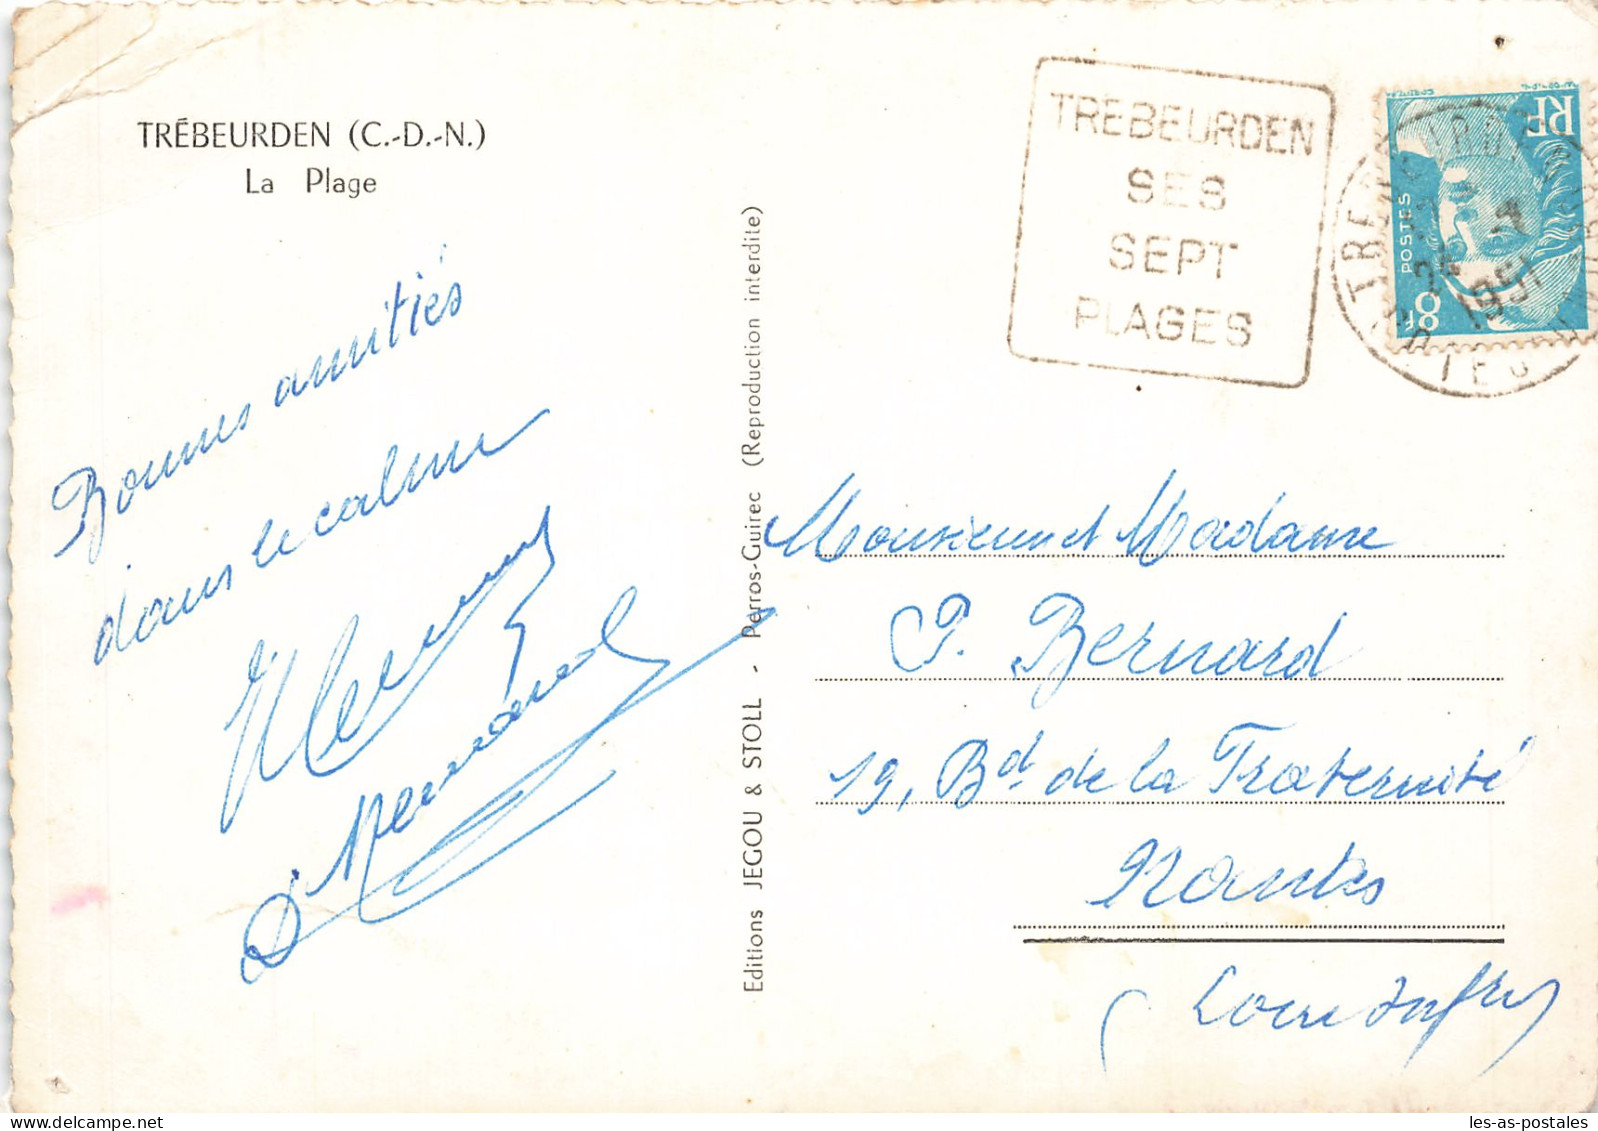 TRÉBEURDEN (C.-D.-N.)
La Plage
Bonnes amitiés
dans le calme
Editions JEGOU & STOLL - Perros-Guirec (Reproduction interdite)
TREBEURDEN
SES
SEPT
PLAGES
RF
POSTES
8F
1951
Monsieur et Madame
P. Bernard
19, Bd de la Fraternité
Nantes
(Loire Infre)
les-as-postales